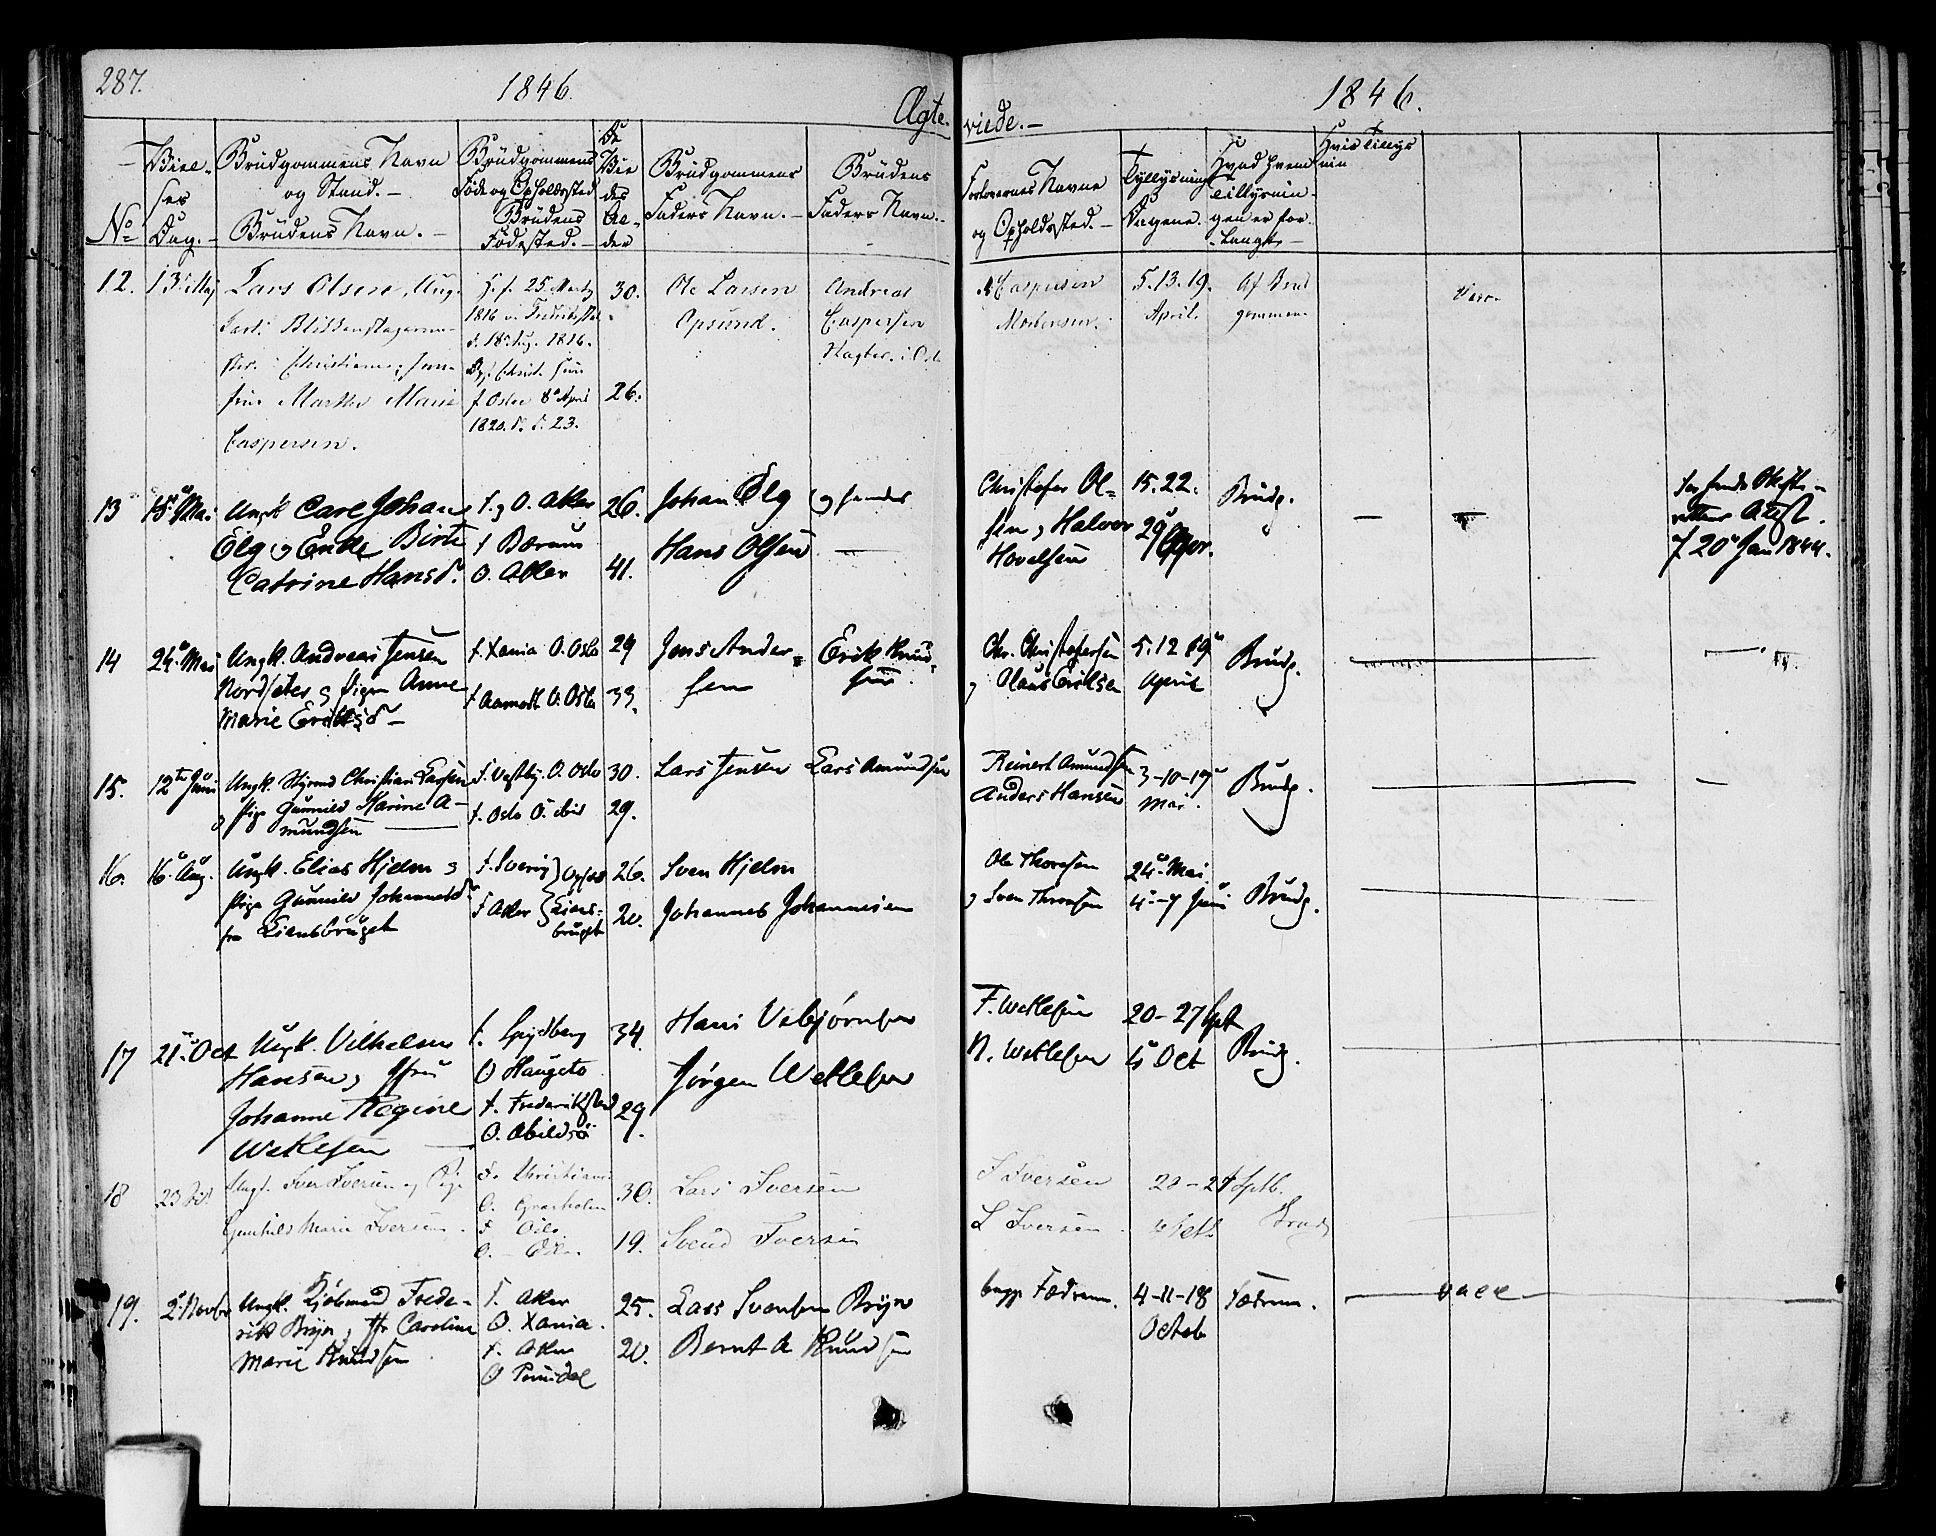 287.
1846.
1846.
Ægte
viede.
No
Vielses Dag.
Brudgommens Navn og Stand. Brudens Navn.
Brudgommens Føde og Opholdssted Brudens Fødested.
De Viedes Alder
Brudgommens Faders Navn.
Brudens Faders Navn.
Forlovernes Navne og Opholdssted.
Tyllysnings Dagene.
Hvad hvem tillysningen er forlangt
Hvis Tillysnin
12. 13 Maj
Lars Olsen, Ung-
i Christiania; Jom-
fru Marthe Marie
Caspersen.
1816
1816.
f. Osloe 8 April
1820. d. 23.
30.
26.
Ole Larsen
Opsund.
Andreas
Caspersen
Caspersen
Mortensen.
5. 13. 19.
April.
Af Brud
gommen
13 15 Mai
Ungk Carl Johan
Elg og Enke Birte
Catrine Hansd.
f. og O. Aker
f Bærum
O. Aker
26.
41.
Johan Elg
Hans Olsen
Christofer Ol-
sen og Halvor
Hovelsen
15. 22.
29
Brudg.
7 20 Jan 1844.
14 24 Mai
Ungk. Andreas Jensen
Nordseter og Pigen Anne
Marie Eriksd
f. Xania O. Oslo
f O. Oslo
29
33.
Jens Ander-
sen
Erik Knud-
sen
Chr. Christofersen
og Olaus Eriksen
5. 12 19
April
Brudg.
15. 12te Juni
Ungk. Christian Larsen
og Pige Gunnild Karine A-
mundsen
f. Vestby. O. Oslo
f. Oslo O. ibid
30.
29.
Lars Jensen
Lars Amundsen
Reinert Amundsen
Anders Hansen
3-10-17
Mai.
Brudg.
16. 16 Aug.
Ungk. Elias Hjelm og
Pige Gunnild Johannesd
fra Liensbruget
f. Sverig
f Aker
Liens-
bruget
26.
20.
Sven Hjelm
Johannes Johannesen
Ole Thoresen
og Sven Thoresen
24 Mai
4-7 Juni
Brudg.
17 21 Oct
Ungk. Vilhelm
Hansen og Jfru
Johanne Regine
Wetlesen
f. Spydberg
O Haugeto
f. Frederikstad
O. Abildsø
34.
29.
Hans Vebjørnsen
Jørgen Wetlesen
F. Wetlesen
N. Wetlesen
20-27 Sept
4 Oct
Brudg.
18 23 Oct
Ungk. Iver Iversen og Pige
Gunhild Marie Iversen.
F. Christiania
O. Græsholm
F Oslo
O. Oslo
30.
19.
Lars Iversen
Svend Iversen
I Iversen
L Iversen
20-27 Septb.
4 Octb.
Brudg
19. 2 Novbr
Ungk. Frede-
rik Bryn, Jfr Caroline
Marie Knudsen
f. Aker
O. Xania.
f. Aker
O
25.
20.
Lars Svensen Bryn
Bernt A Knudsen
begge Fædrene.
4-11-18
Octob
Fædrene.